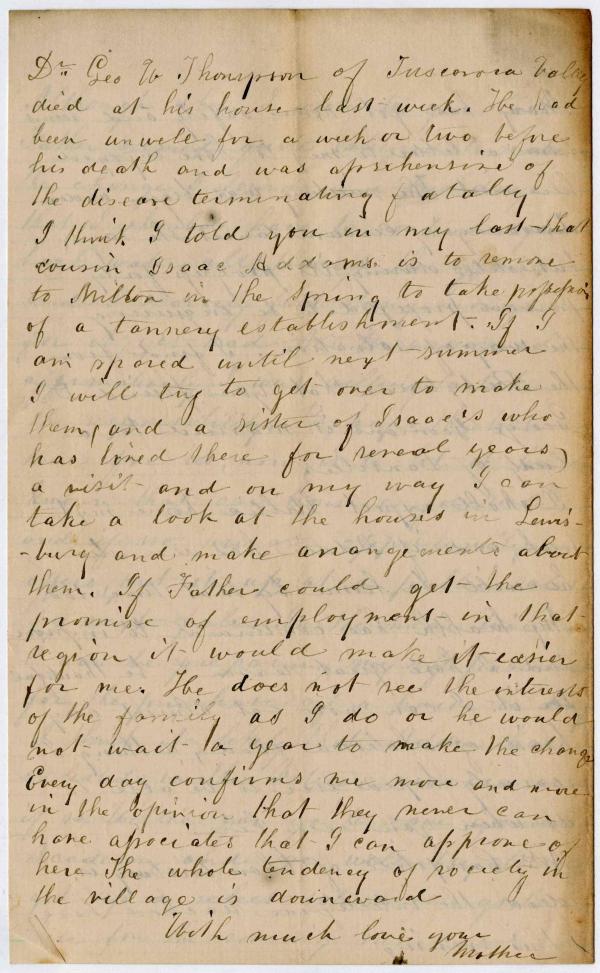 Dr. Geo W Thompson of Tuscarora Valley
died at his house last week. He had
been unwell for a week or two before
his death and was aprehensive of
the disease terminating fatally
I think I told you in my last that
cousin Isaac Addams is to remove
to Milton in the Spring to take possession
of a tannery establishment. If I
am spared until next summer
I will try to get over to make
them (and a sister of Isaac's who
has lived there for several years)
a visit and on my way I can
take a look at the houses in Lewis-
-burg and make arrangements about
them. If Father could get the
promise of employment in that
region it would make it easier
for me. He does not see the interests
of the family as I do or he would
not wait a year to make the change
Every day confirms me more and more
in the opinion that they never can
have associates that I can approve of
here The whole tendency of society in
the village is downward
With much love your
Mother